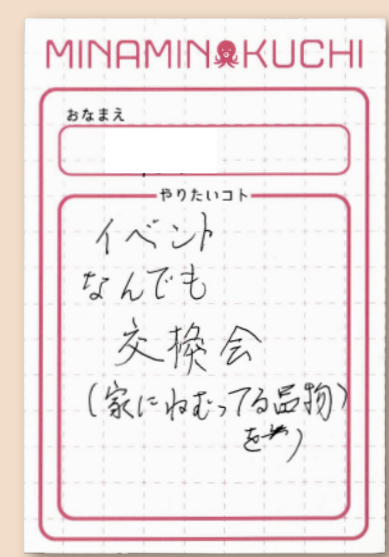 MINAMINOKUCHI
おなまえ
やりたいコト
イベント
なんでも
交換会
(家にねむってる品物)
を